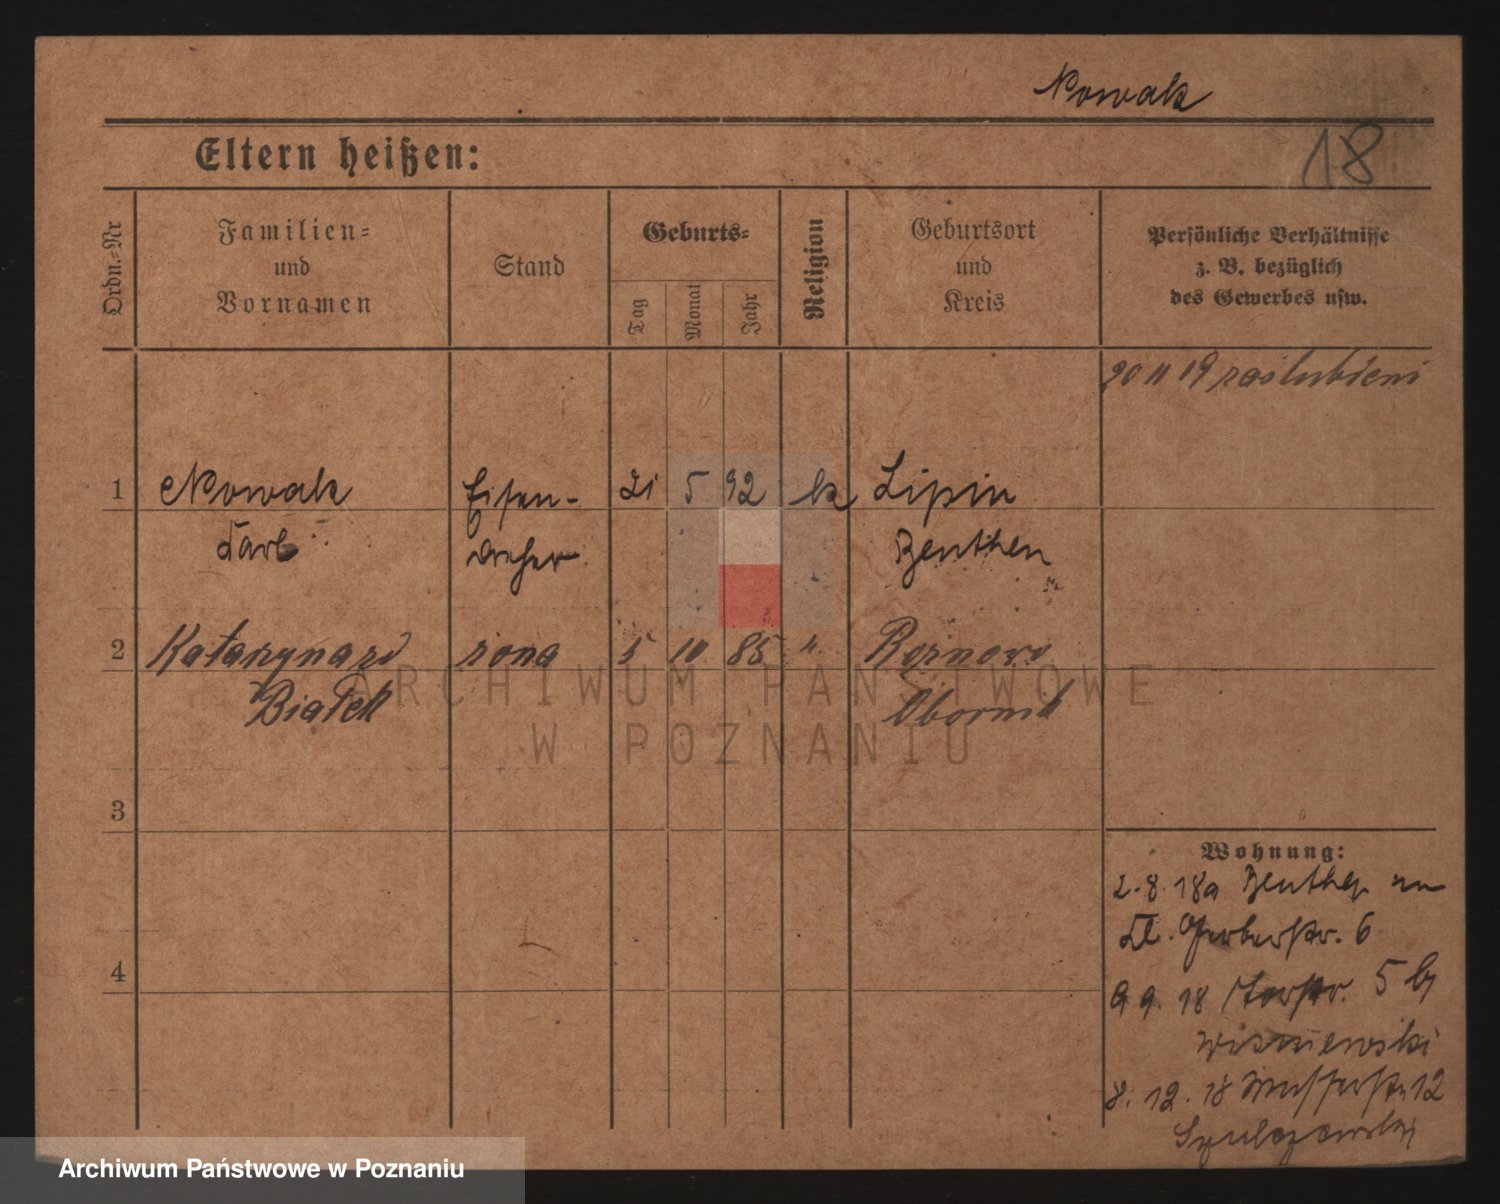 Nowak
18
Eltern heißen:
Ordn.-Nr
Familien-
und
Vornamen
Stand
Geburts-
Tag
Monat
Jahr
Religion
Geburtsort
und
Kreis
Persönliche Verhältnisse
z. B. bezüglich
des Gewerbes usw.
20 11 19 zaślubieni
1 Nowak Eisen- 21 5 92 k Lipin
Karl dreher Beuthen
2 Katarzyna zd żona 5 10 85 "
Białek Obornik
3
4
Wohnung:
2.8.18 a Beuthen
Kl. Gerberstr. 6
9 9. 18 Torstr. 5 bj
Wiśniewski
8. 12. 18 12
Szulczewski
ARCHIWUM PAŃSTWOWE
W POZNANIU
Archiwum Państwowe w Poznaniu